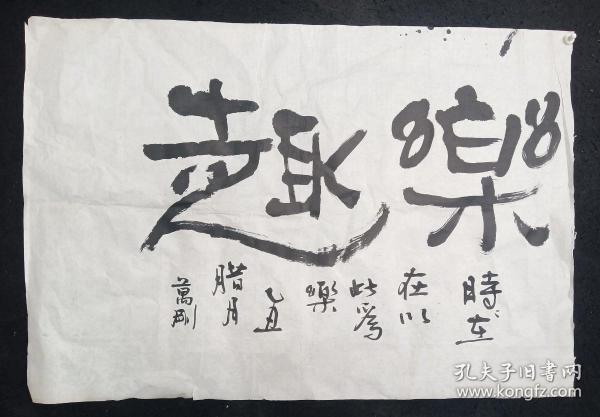 樂趣
時在
在以
此爲
樂
乙丑
臘月
萬剛
孔夫子旧书网
www.kongfz.com